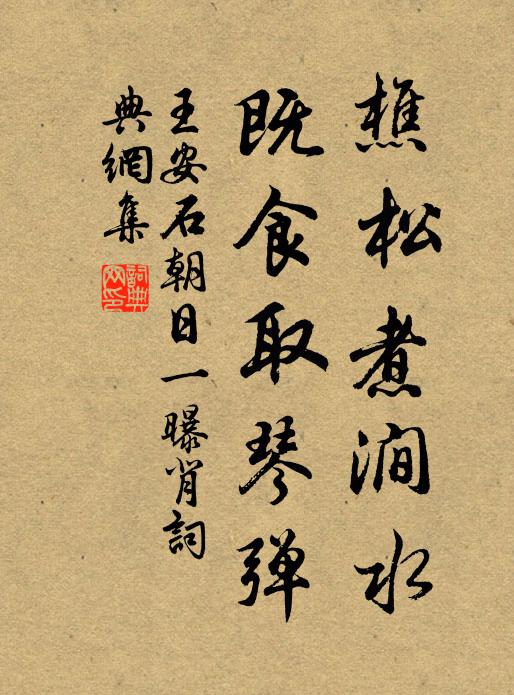 樵松煮澗水
既食取琴弹
王安石朝日一曝背詞
典網集
詞典
网印